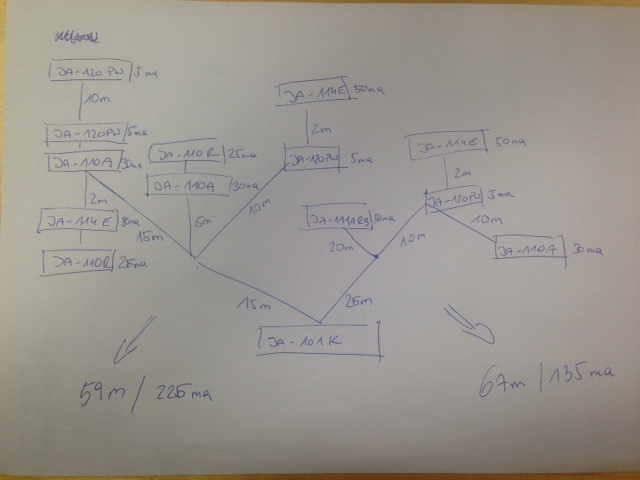 JA-120PW 5ma
10m
JA-120PW 5ma
JA-110A 30ma
2m
JA-114E
JA-110R 25ma
15m
JA-110R 25ma
JA-110A 30ma
5m
JA-114E 50ma
2m
JA-120PW 5ma
10m
JA-111A RS
20m
JA-114E 50ma
2m
JA-120PW 5ma
10m
10m
JA-110A 30ma
15m
25m
JA-101K
59m / 225ma
67m / 135ma